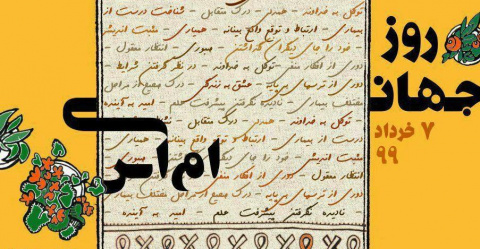 روز
جهانی
ام‌اس
۷ خرداد
۹۹
توکل به خداوند - همدلی - درک متقابل - شناخت درست از
بیماری - ارتباط و توقع واقع بینانه - همیاری - مثبت اندیشی
خود را جای دیگران گذاشتن - صبوری - انتظار معقول -
دوری از افکار منفی - توکل به خداوند - در نظر گرفتن شرایط -
دوری از ترسهای بی پایه - عشق به زندگی - درک صحیح از مراحل
مختلف بیماری - نادیده نگرفتن پیشرفت علم - امید به آینده
توکل به خداوند - همدلی - درک متقابل -
درست از بیماری - ارتباط و توقع واقع بینانه - همیاری -
مثبت اندیشی - خود را جای - صبوری -
انتظار معقول - دوری از افکار منفی -
دوری از ترسهای بی پایه - درک صحیح از مراحل مختلف بیماری
نادیده نگرفتن پیشرفت علم - امید به آینده